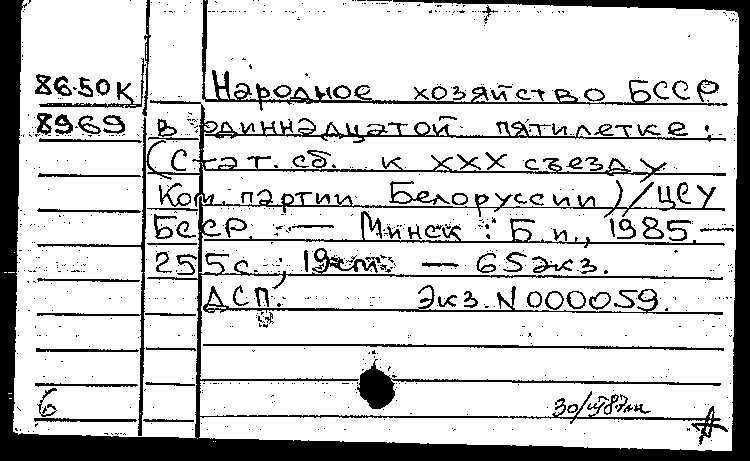 86-50К Народное хозяйство БССР
8969 в одиннадцатой пятилетке:
(Стат. сб. к XXX съезду
Ком. партии Белоруссии) / ЦСУ
БССР. — Минск : Б.и., 1985. —
255 с.; 19 см — 65 экз.
ДСП. Экз. N 000059.
6